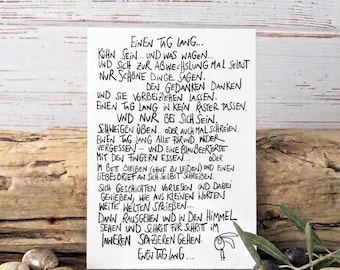 EINEN TAG LANG...
KÜHN SEIN... UND WAS WAGEN...
UND SICH ZUR ABWECHSLUNG MAL SELBST
NUR SCHÖNE DINGE SAGEN.
DEN GEDANKEN DANKEN
UND SIE VORBEIZIEHEN LASSEN.
EINEN TAG LANG IN KEIN RASTER PASSEN.
UND NUR BEI SICH SEIN.
SCHWEIGEN ÜBEN. ODER AUCH MAL SCHREIEN.
EINEN TAG LANG ALLE FÜR UND WIDER
VERGESSEN – UND EINE BLAUBEERTORTE
MIT DEN FINGERN ESSEN... ODER
IM BETT BLEIBEN (OHNE ZU LEIDEN) UND EINEN
LIEBESBRIEF AN SICH SELBST SCHREIBEN.
SICH GESCHICHTEN VORLESEN UND DABEI
GENIEẞEN, WIE AUS KLEINEN WORTEN
WEITE WELTEN SPRIEẞEN...
DANN RAUSGEHEN UND IN DEN HIMMEL
SEHEN UND SCHRITT FÜR SCHRITT IM
INNEREN SPAZIEREN GEHEN.
EINEN TAG LANG...